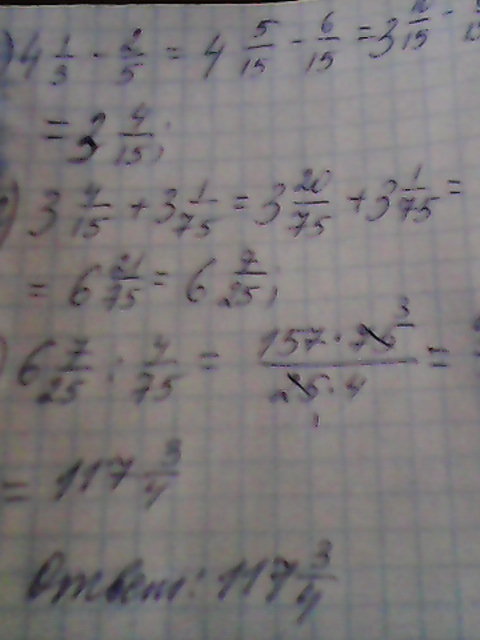 ) 4 1/3 - 2/5 = 4 5/15 - 6/15 = 3
= 3 4/15;
) 3 4/15 + 3 1/75 = 3 20/75 + 3 1/75 =
= 6 21/75 = 6 7/25;
) 6 7/25 : 4/75 = 157 · 75 3 / 25 · 4 1 =
= 117 3/4
Ответ: 117 3/4